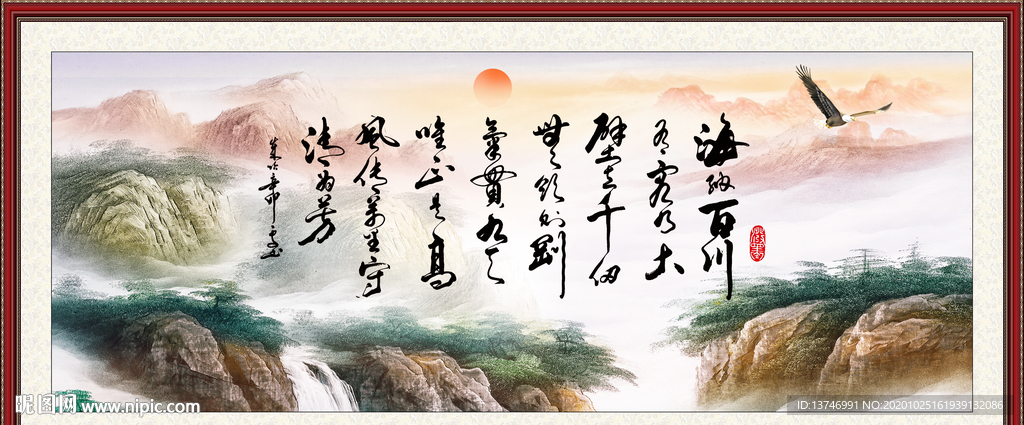 海纳百川
有容乃大
壁立千仞
無欲則剛
氣貫九天
唯正是高
風传萬里守
清为芳
昵图网 www.nipic.com
ID:13746991 NO:20201025161939132086